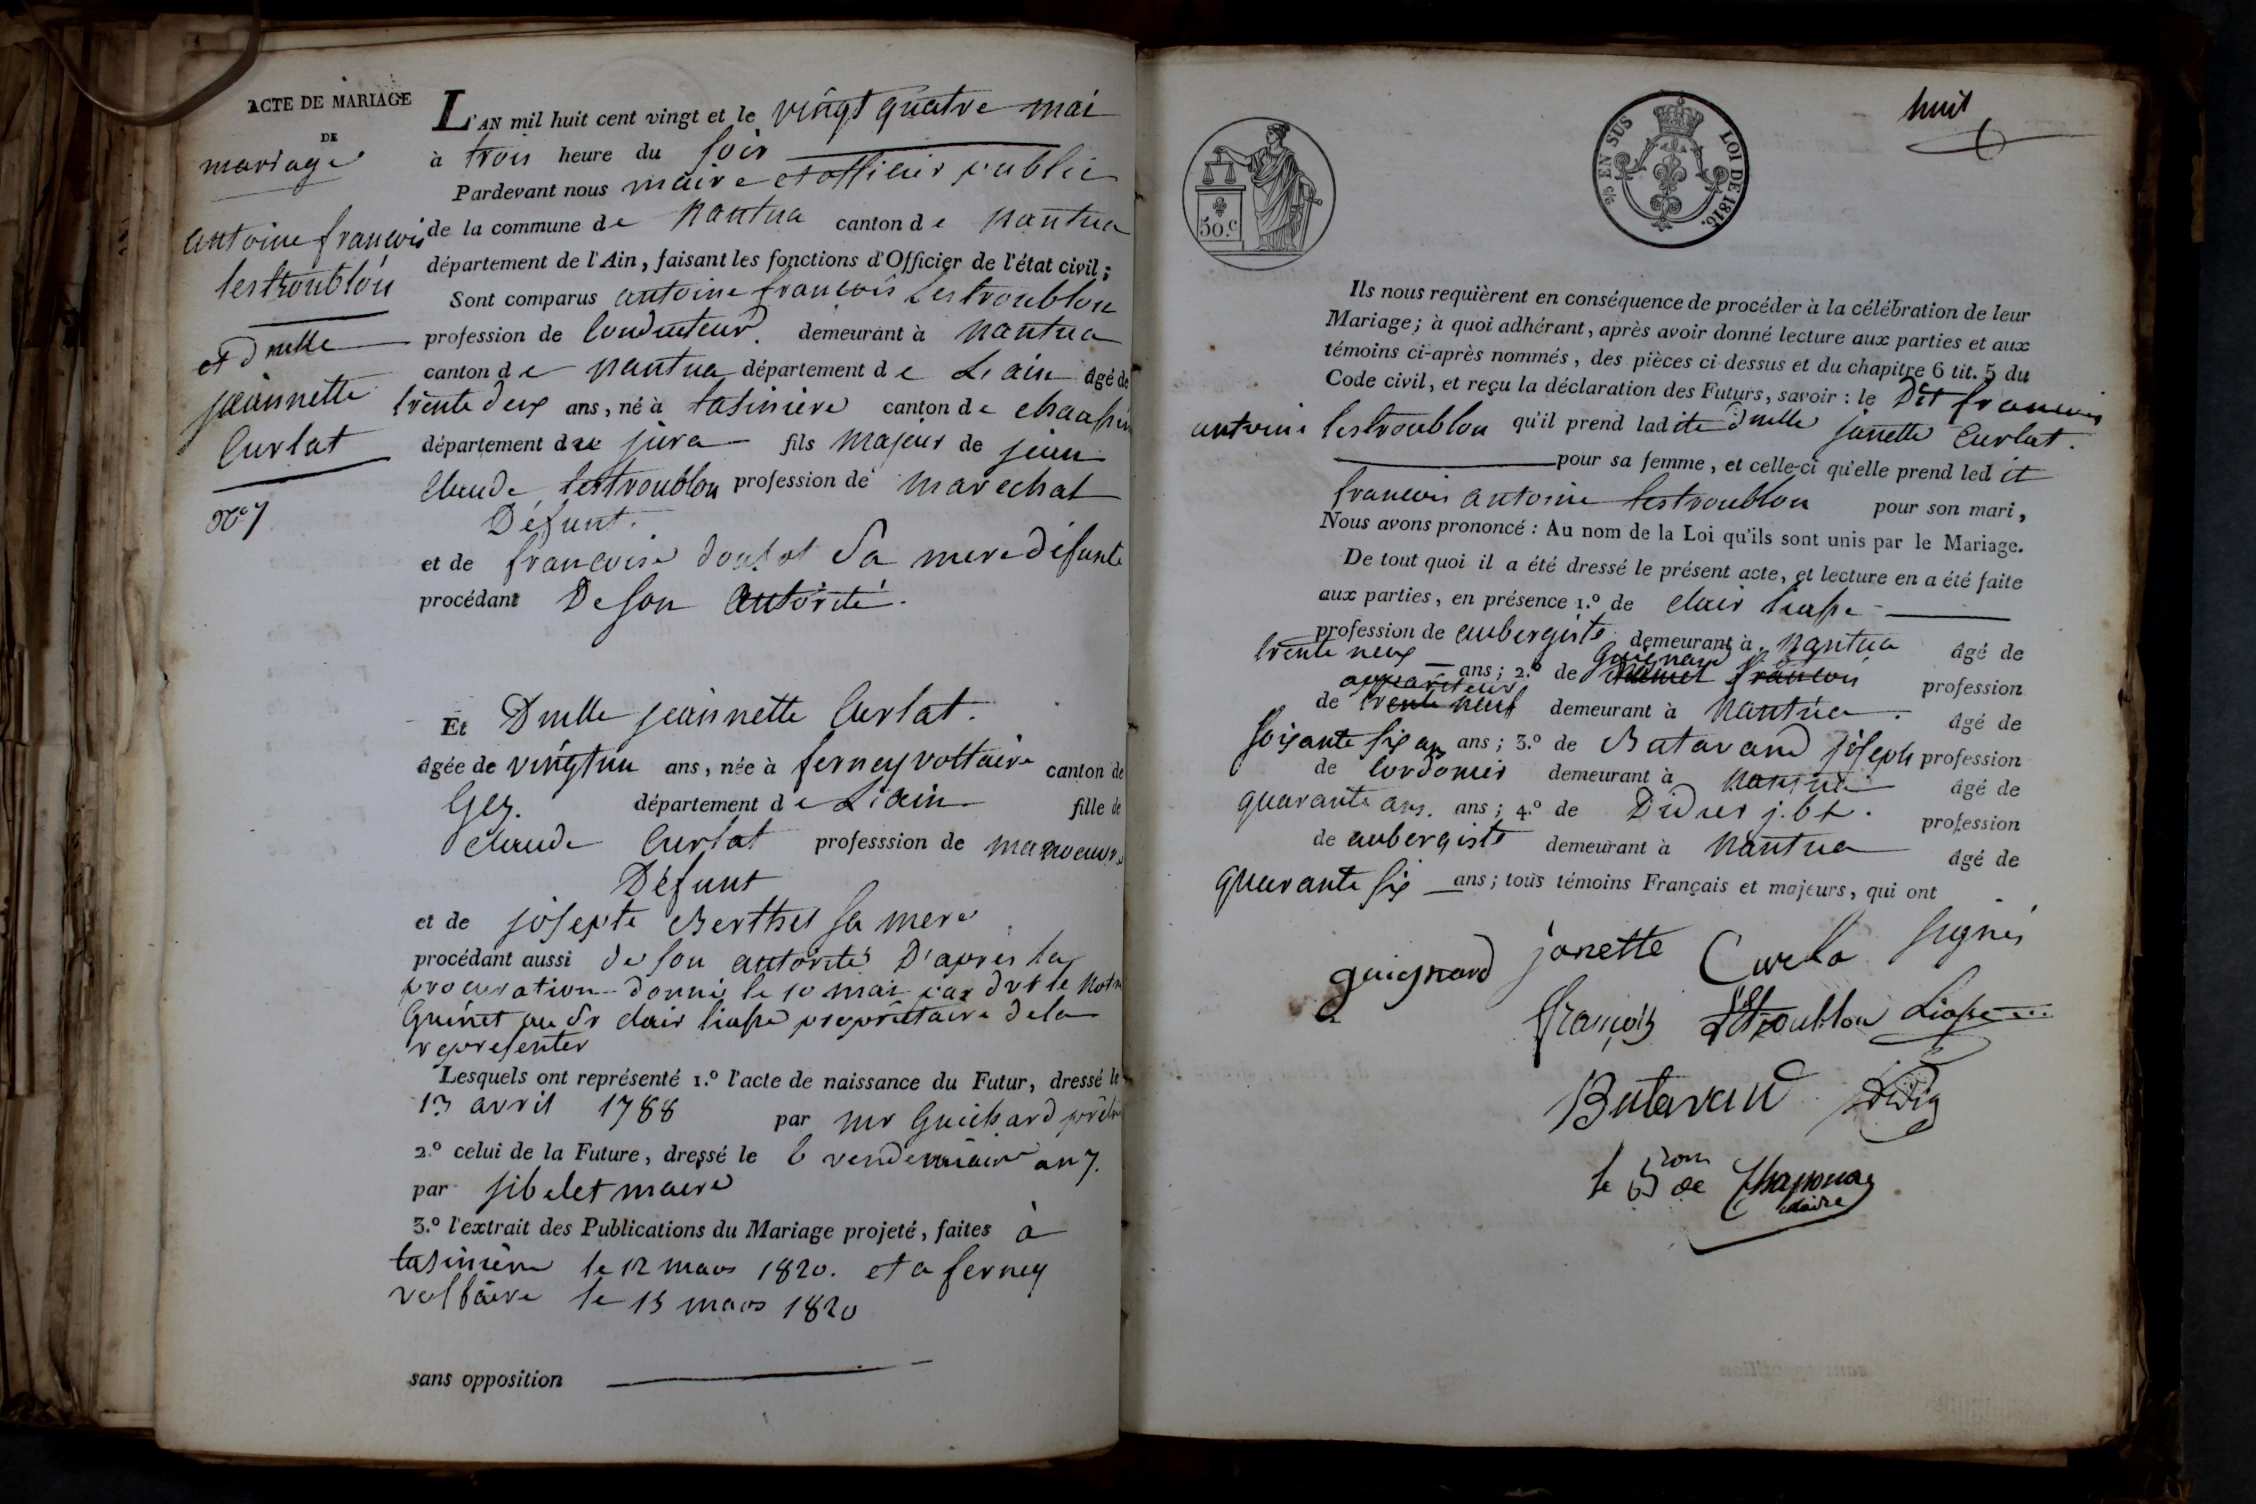 ACTE DE MARIAGE
DE
mariage
antoine francois
lestroublon
et dmelle
jeannette
Curlat
N° 7
L'AN mil huit cent vingt et le vingt quatre mai
à trois heure du soir
Pardevant nous maire et officier public
de la commune de Nantua canton de Nantua
département de l'Ain, faisant les fonctions d'Officier de l'état civil;
Sont comparus antoine francois Lestroublon
profession de Conducteur demeurant à Nantua
canton de Nantua département de L'ain âgé de
trente deux ans, né à tasiniere canton de
département du jura fils majeur de jean
Claude Lestroublon profession de marechal
Défunt.
et de francoise sa mere défunte
procédant De son autorité.
Et Dmelle jeannette Curlat.
âgée de vingtun ans, née à ferney voltaire canton de
Gex. département de L'ain fille de
Claude Curlat professsion de manoeuvre
Défunt
et de josephte Berthet sa mere
procédant aussi de son autorité D'apres la
procuration donné le 10 mai par dvt le Notre
Guinet au Sr clair liasse proprietaire de la
representer
Lesquels ont représenté 1.° l'acte de naissance du Futur, dressé le
13 avril 1788 par mr Guichard prêtre
2.° celui de la Future, dressé le 6 vendemiaire an 7.
par sibelet maire
3.° l'extrait des Publications du Mariage projeté, faites à
tasiniere le 12 mars 1820. et a ferney
voltaire le 13 mars 1820
sans opposition
huit
50.c
c/s EN SUS LOI DE 1816.
Ils nous requièrent en conséquence de procéder à la célébration de leur
Mariage; à quoi adhérant, après avoir donné lecture aux parties et aux
témoins ci-après nommés, des pièces ci dessus et du chapitre 6 tit. 5 du
Code civil, et reçu la déclaration des Futurs, savoir : le Dit francois
antoine lestroublon qu'il prend ladite dmelle janette Curlat.
pour sa femme, et celle-ci qu'elle prend ledit
francois antoine lestroublon pour son mari,
Nous avons prononcé : Au nom de la Loi qu'ils sont unis par le Mariage.
De tout quoi il a été dressé le présent acte, et lecture en a été faite
aux parties, en présence 1.° de clair liasse
profession de aubergiste demeurant à Nantua âgé de
trente neuf ans; 2.° de Guignard francois profession
appariteur
de trente neuf demeurant à Nantua. âgé de
soixante six ans ans; 3.° de Butavand joseph profession
de Cordonier demeurant à Nantua âgé de
quarante ans. ans; 4.° de Didier j. bt. profession
de aubergiste demeurant à Nantua âgé de
quarante six ans; tous témoins Français et majeurs, qui ont
signés
guignard janette Curla
françois Lestroublon Liasse
Butavand
le Bon de
Maire